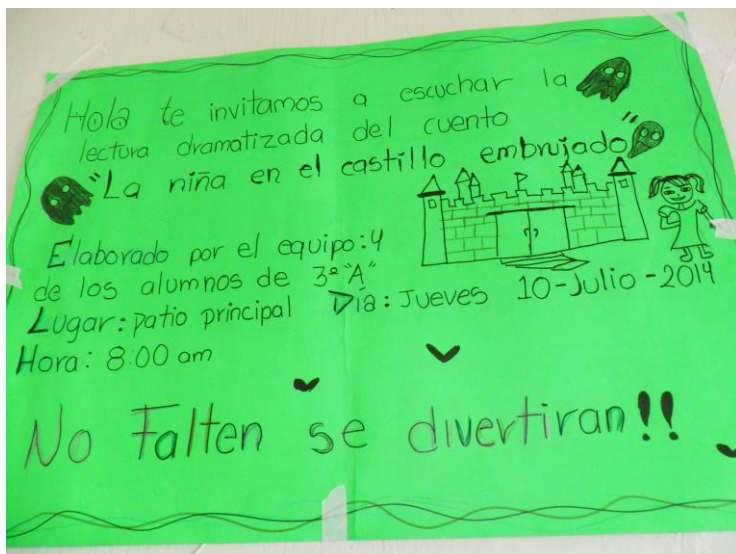 Hola te invitamos a escuchar la
lectura dramatizada del cuento
"La niña en el castillo embrujado"
Elaborado por el equipo: 4
de los alumnos de 3º "A"
Lugar: patio principal Día: Jueves 10-Julio-2014
Hora: 8:00 am
No Falten se divertiran!!